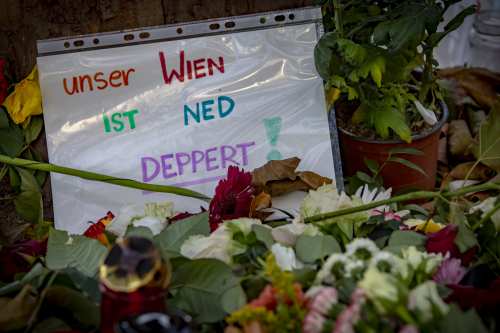 unser WIEN
IST NED
DEPPERT!